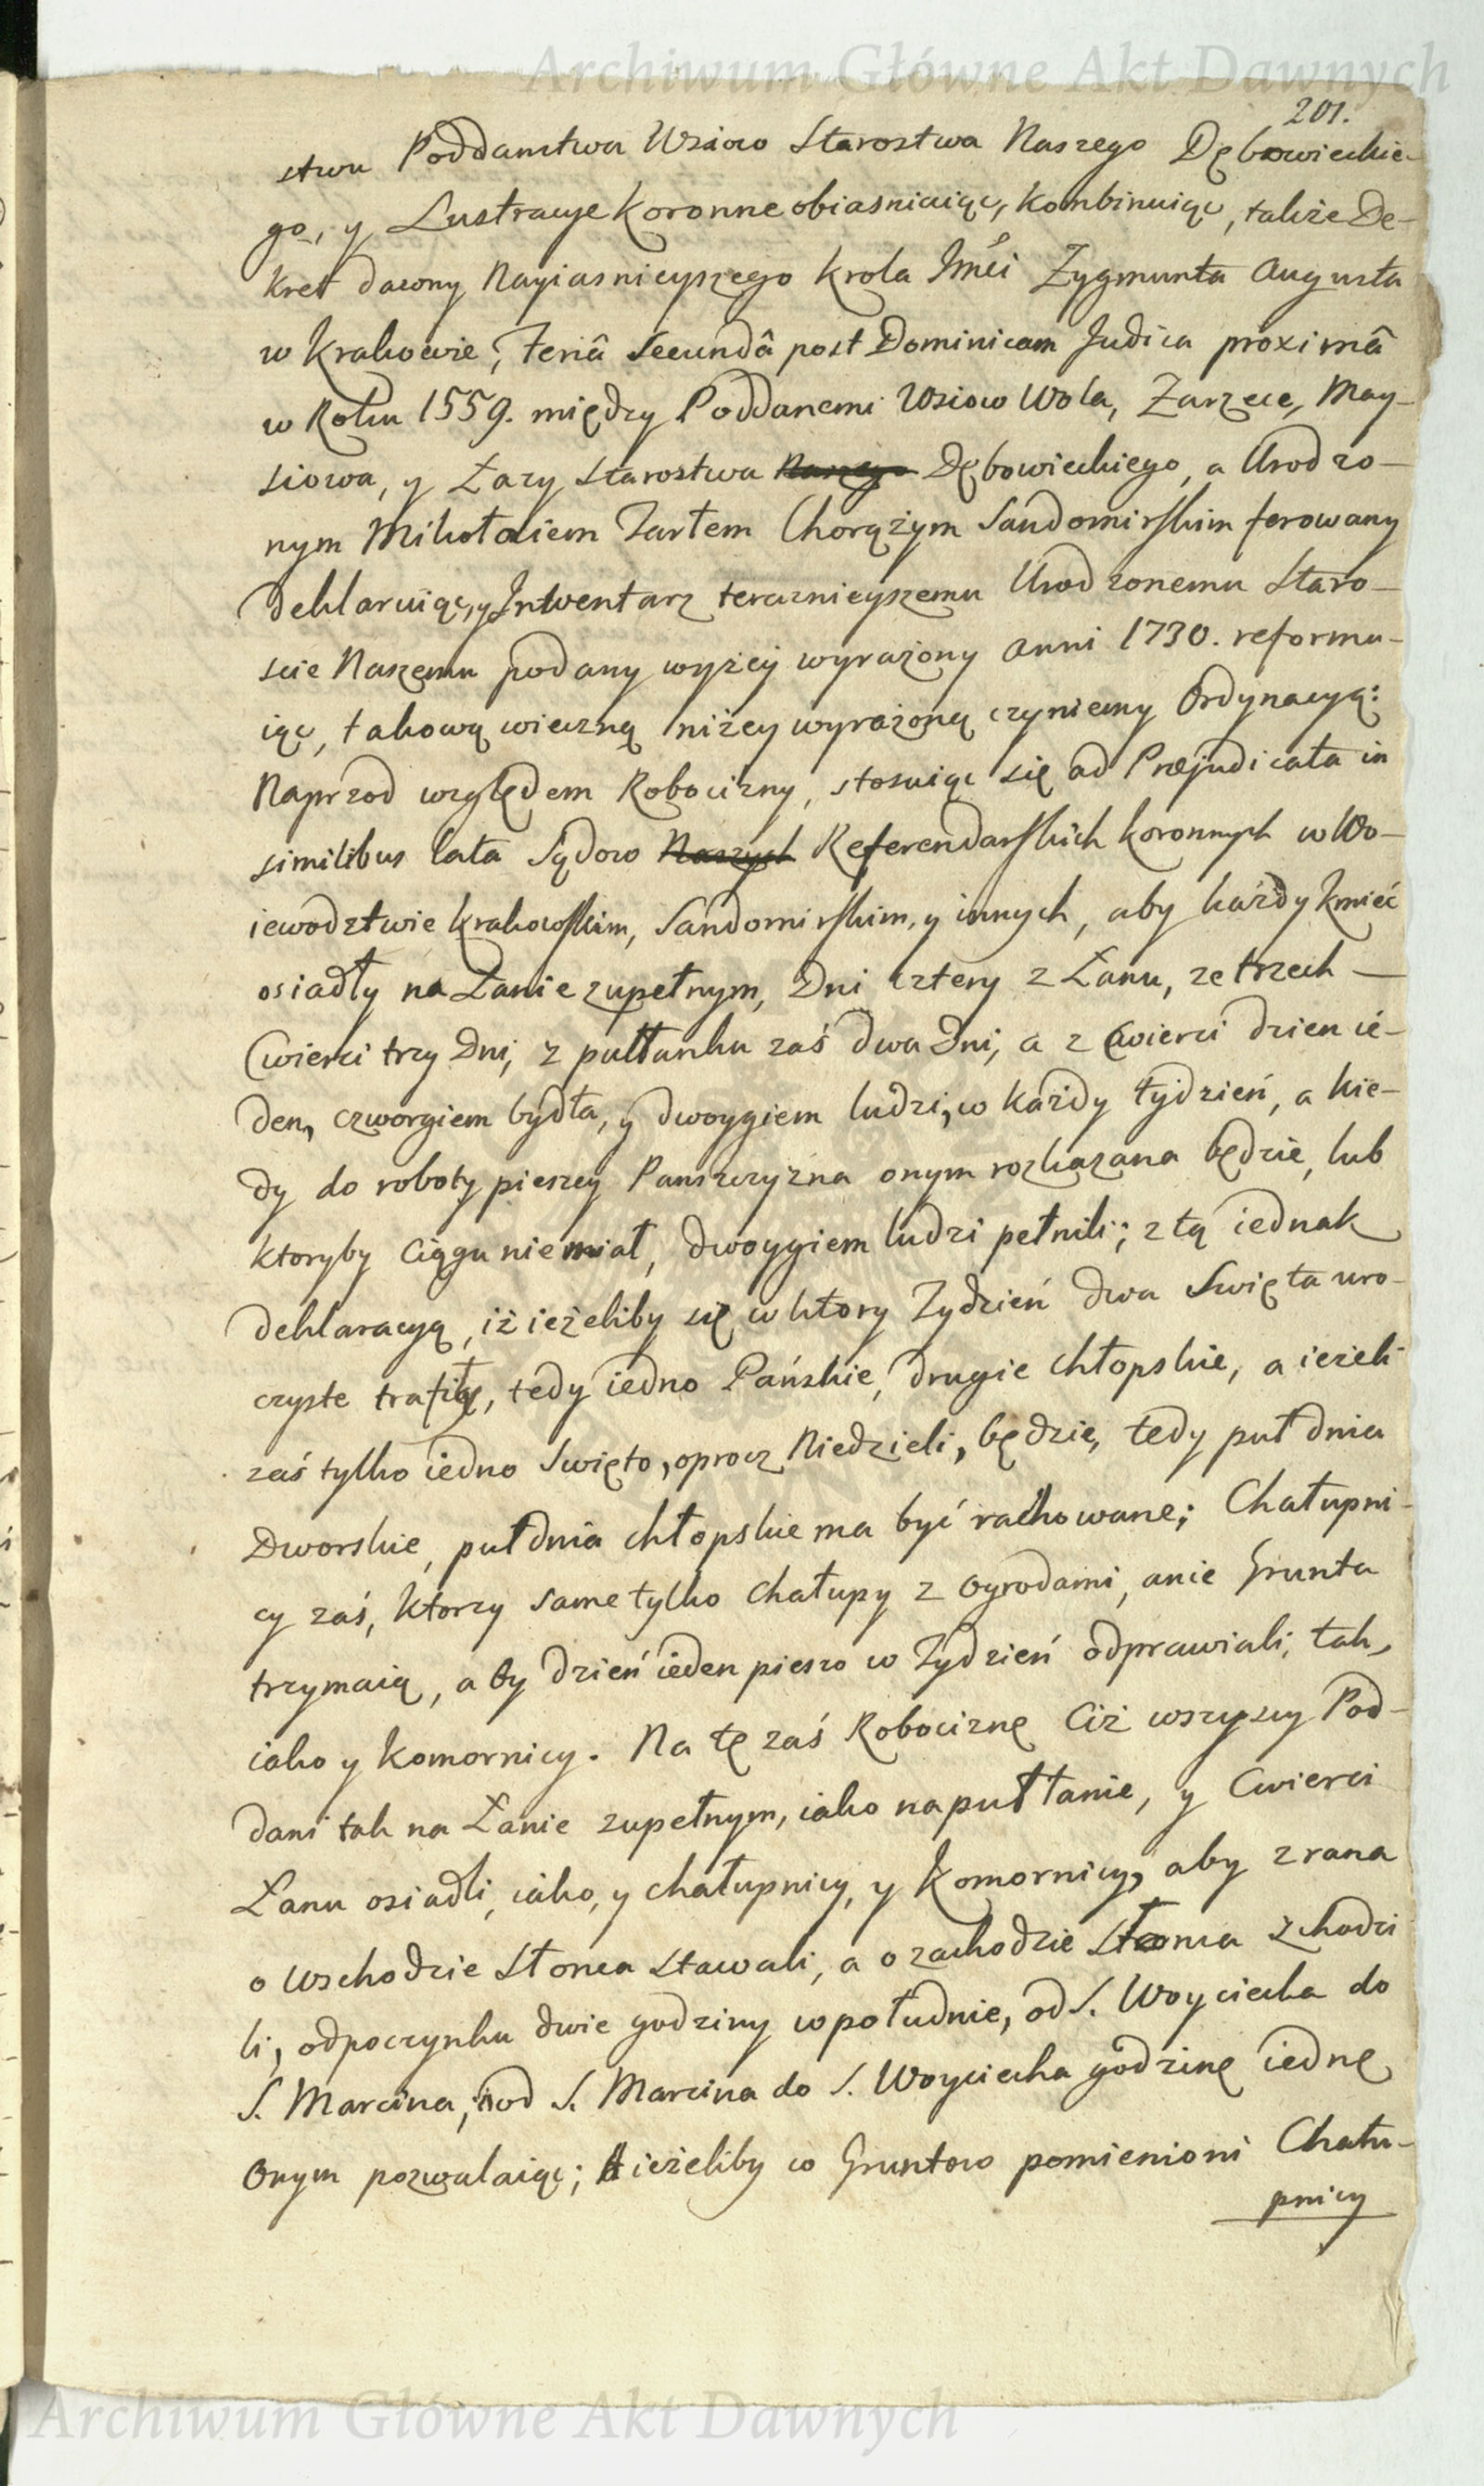 Archiwum Główne Akt Dawnych
201.
stwu Poddanstwa Wsiow Starostwa Naszego Dębowieckie-
go, y Lustracye Koronne obiasniaiąc, kombinuiąc, także De-
kret dawny Nayiasnieyszego Krola Jmći Zygmunta Augusta
w Krakowie, Feriâ Secundâ post Dominicam Judica proximâ
w Roku 1559. między Poddanemi Wsiow Wola, Zarzece, May-
siowa, y Łazy Starostwa Naszego Dębowieckiego, a Urodzo-
nym Mikołaiem Tarłem Chorążym Sandomirskim ferowany
deklaruiąc, y Inwentarz teraznieyszemu Urodzonemu Staro-
scie Naszemu podany wyżey wyrażony anni 1730. reformu-
iąc, takową wieczną niżey wyrażoną czyniemy Ordynacyą:
Naprzod względem Robocizny, stosuiąc się ad Præjudicata in
similibus lata Sądow Naszych Referendarskich Koronnych w Wo-
iewodztwie Krakowskim, Sandomirskim, y innych, aby każdy kmieć
osiadły na Łanie zupełnym, dni cztery z Łanu, ze trzech
Cwierci trzy dni, z pułłanku zaś dwa dni, a z Cwierci dzien ie-
den, czworgiem bydła, y dwoygiem ludzi, w każdy tydzień, a kie-
dy do roboty pieszey Panszczyzna onym rozkazana będzie, lub
ktoryby ciągu niemiał, dwoygiem ludzi pełnili; z tą iednak
deklaracyą, iż ieżeliby się w ktory Tydzień dwa Swięta uro-
czyste trafiły, tedy iedno Pańskie, drugie chłopskie, a ieżeli
zaś tylko iedno Swięto, oprocz Niedzieli, będzie, tedy puł dnia
Dworskie, puł dnia chłopskie ma być rachowane; Chałupni-
cy zaś, ktorzy same tylko chałupy z ogrodami, a nie Grunta
trzymaią, aby dzień ieden pieszo w Tydzień odprawiali, tak,
iako y Komornicy. Na tę zaś Robociznę Ciż wszyscy Pod-
dani tak na Łanie zupełnym, iako na puł łanie, y Cwierci
Łanu osiadli, iako, y chałupnicy, y Komornicy, aby z rana
o wschodzie słonca stawali, a o zachodzie słonca zchodzi
li, odpoczynku dwie godziny w południe, od S. Woyciecha do
S. Marcina, od S. Marcina do S. Woyciecha godzinę iednę
Onym pozwalaiąc; A ieżeliby co Gruntow pomienioni Chału-
pnicy
Archiwum Główne Akt Dawnych